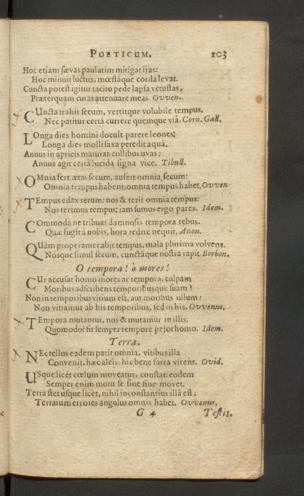 POETICUM. 103
Hoc etiam sævas paulatim mitigat iras:
Hoc minuit luctus, mœstaque corda levat.
Cuncta potest igitur tacito pede lapsa vetustas,
Præterquam curas attenuare meas. Ovven.
CUncta trahit secum, vertitque volubile tempus,
Nec patitur certâ currere quenque viâ. Corn. Gall.
LOnga dies homini docuit parere leones;
Longa dies molli saxa peredit aquâ.
Annus in apricis maturat collibus uvas:
Annus agit certâ lucida signa vice. Tibull.
OMnia fert ætas secum, aufert omnia, secum:
Omnia tempus habent; omnia tempus habet. Ovven
TEmpus edax rerum: nos & terit omnia tempus:
Nos terimus tempus; jam sumus ergo pares. Idem.
COmmoda ne tribuas damnosis tempora rebus.
Quæ fugit à nobis, hora redire nequit. Anon.
QUàm properanter abit tempus, mala plurima volvens.
Nosque simul secum, cunctáque nostra rapit. Borbon.
O tempora! ô mores!
CUr accusat homo mores ac tempora, culpam
Moribus adscribens temporibusque suam?
Non in temporibus vitium est, aut moribus ullum:
Non vitiamur ab his temporibus, sed in his. Ovvenus.
TEmpora mutantur, nos & mutamur in illis.
Quomodo? fit semper tempore pejor homo. Idem.
Terra.
NEc tellus eadem parit omnia, vitibus illa
Convenit, hæc oleis: hic bene farra virent. Ovid.
USque licèt cœlum moveatur, constat eodem
Semper enim motu se sine fine movet.
Terra stet usque licèt, nihil inconstantius illâ est;
Terrarum errores angulus omnis habet. Ovvenus.
G 4 Testis.